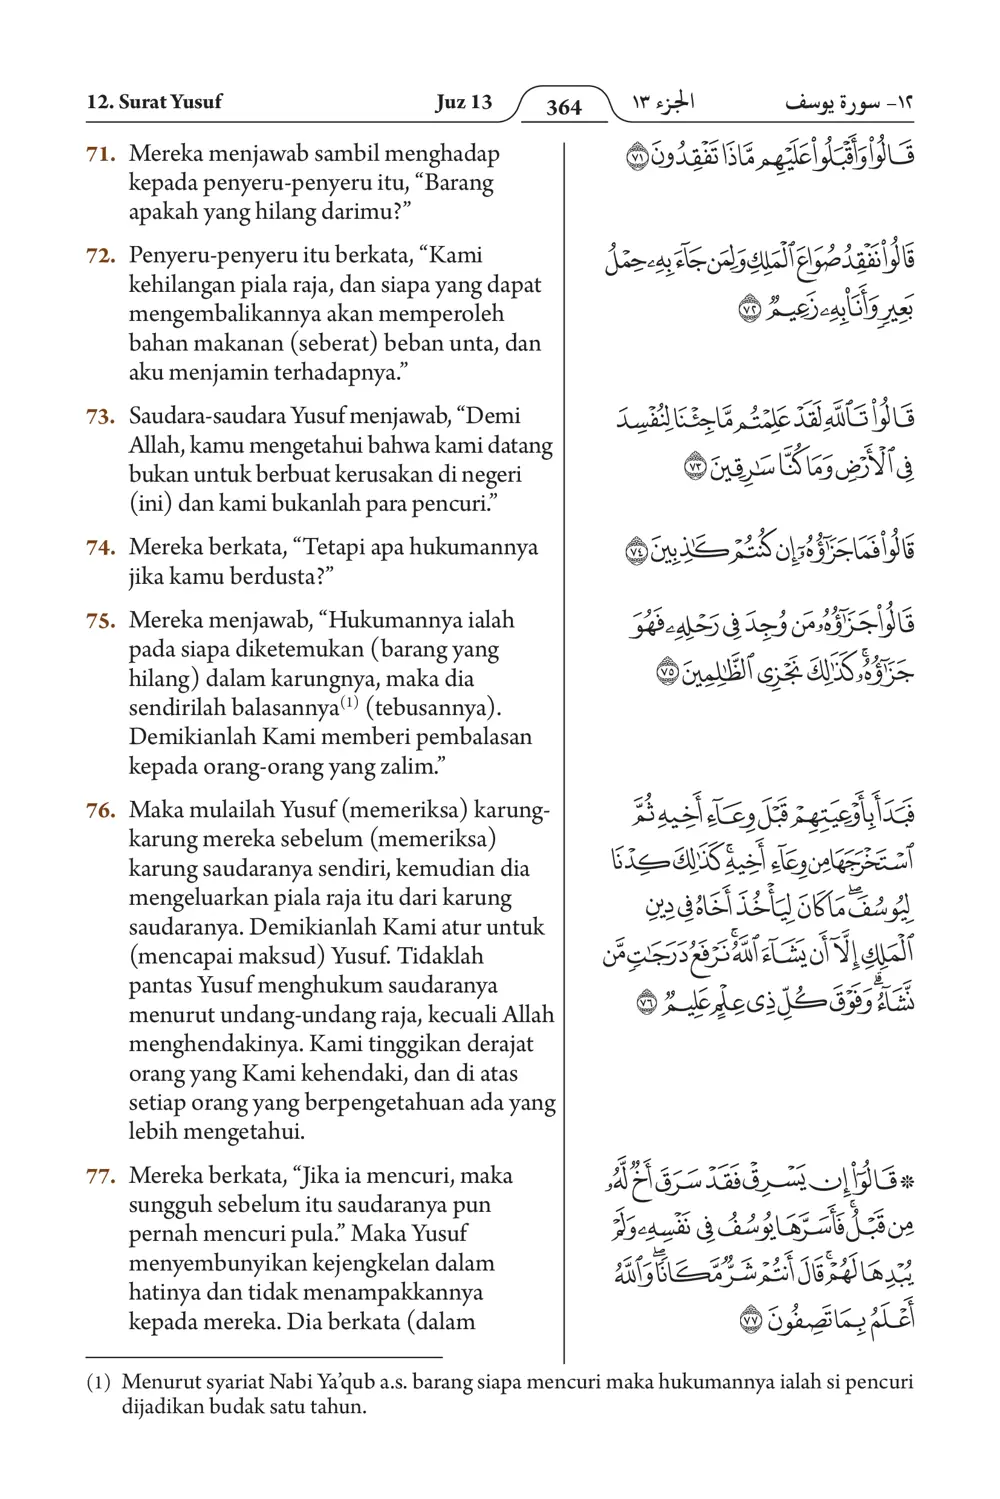 12. Surat Yusuf Juz 13 364 الجزء ١٣ ١٢- سورة يوسف
71. Mereka menjawab sambil menghadap
kepada penyeru-penyeru itu, “Barang
apakah yang hilang darimu?”
قَالُواْ وَأَقۡبَلُواْ عَلَيۡهِم مَّاذَا تَفۡقِدُونَ ٧١
72. Penyeru-penyeru itu berkata, “Kami
kehilangan piala raja, dan siapa yang dapat
mengembalikannya akan memperoleh
bahan makanan (seberat) beban unta, dan
aku menjamin terhadapnya.”
قَالُواْ نَفۡقِدُ صُوَاعَ ٱلۡمَلِكِ وَلِمَن جَآءَ بِهِۦ حِمۡلُ
بَعِيرٖ وَأَنَا۠ بِهِۦ زَعِيمٞ ٧٢
73. Saudara-saudara Yusuf menjawab, “Demi
Allah, kamu mengetahui bahwa kami datang
bukan untuk berbuat kerusakan di negeri
(ini) dan kami bukanlah para pencuri.”
قَالُواْ تَٱللَّهِ لَقَدۡ عَلِمۡتُم مَّا جِئۡنَا لِنُفۡسِدَ
فِي ٱلۡأَرۡضِ وَمَا كُنَّا سَٰرِقِينَ ٧٣
74. Mereka berkata, “Tetapi apa hukumannya
jika kamu berdusta?”
قَالُواْ فَمَا جَزَٰٓؤُهُۥٓ إِن كُنتُمۡ كَٰذِبِينَ ٧٤
75. Mereka menjawab, “Hukumannya ialah
pada siapa diketemukan (barang yang
hilang) dalam karungnya, maka dia
sendirilah balasannya(1) (tebusannya).
Demikianlah Kami memberi pembalasan
kepada orang-orang yang zalim.”
قَالُواْ جَزَٰٓؤُهُۥ مَن وُجِدَ فِي رَحۡلِهِۦ فَهُوَ
جَزَٰٓؤُهُۥۚ كَذَٰلِكَ نَجۡزِي ٱلظَّٰلِمِينَ ٧٥
76. Maka mulailah Yusuf (memeriksa) karung-
karung mereka sebelum (memeriksa)
karung saudaranya sendiri, kemudian dia
mengeluarkan piala raja itu dari karung
saudaranya. Demikianlah Kami atur untuk
(mencapai maksud) Yusuf. Tidaklah
pantas Yusuf menghukum saudaranya
menurut undang-undang raja, kecuali Allah
menghendakinya. Kami tinggikan derajat
orang yang Kami kehendaki, dan di atas
setiap orang yang berpengetahuan ada yang
lebih mengetahui.
فَبَدَأَ بِأَوۡعِيَتِهِمۡ قَبۡلَ وِعَآءِ أَخِيهِ ثُمَّ
ٱسۡتَخۡرَجَهَا مِن وِعَآءِ أَخِيهِۚ كَذَٰلِكَ كِدۡنَا
لِيُوسُفَۖ مَا كَانَ لِيَأۡخُذَ أَخَاهُ فِي دِينِ
ٱلۡمَلِكِ إِلَّآ أَن يَشَآءَ ٱللَّهُۚ نَرۡفَعُ دَرَجَٰتٖ مَّن
نَّشَآءُۗ وَفَوۡقَ كُلِّ ذِي عِلۡمٍ عَلِيمٞ ٧٦
77. Mereka berkata, “Jika ia mencuri, maka
sungguh sebelum itu saudaranya pun
pernah mencuri pula.” Maka Yusuf
menyembunyikan kejengkelan dalam
hatinya dan tidak menampakkannya
kepada mereka. Dia berkata (dalam
۞ قَالُوٓاْ إِن يَسۡرِقۡ فَقَدۡ سَرَقَ أَخٞ لَّهُۥ
مِن قَبۡلُۚ فَأَسَرَّهَا يُوسُفُ فِي نَفۡسِهِۦ وَلَمۡ
يُبۡدِهَا لَهُمۡۚ قَالَ أَنتُمۡ شَرّٞ مَّكَانٗاۖ وَٱللَّهُ
أَعۡلَمُ بِمَا تَصِفُونَ ٧٧
(1) Menurut syariat Nabi Ya’qub a.s. barang siapa mencuri maka hukumannya ialah si pencuri
dijadikan budak satu tahun.